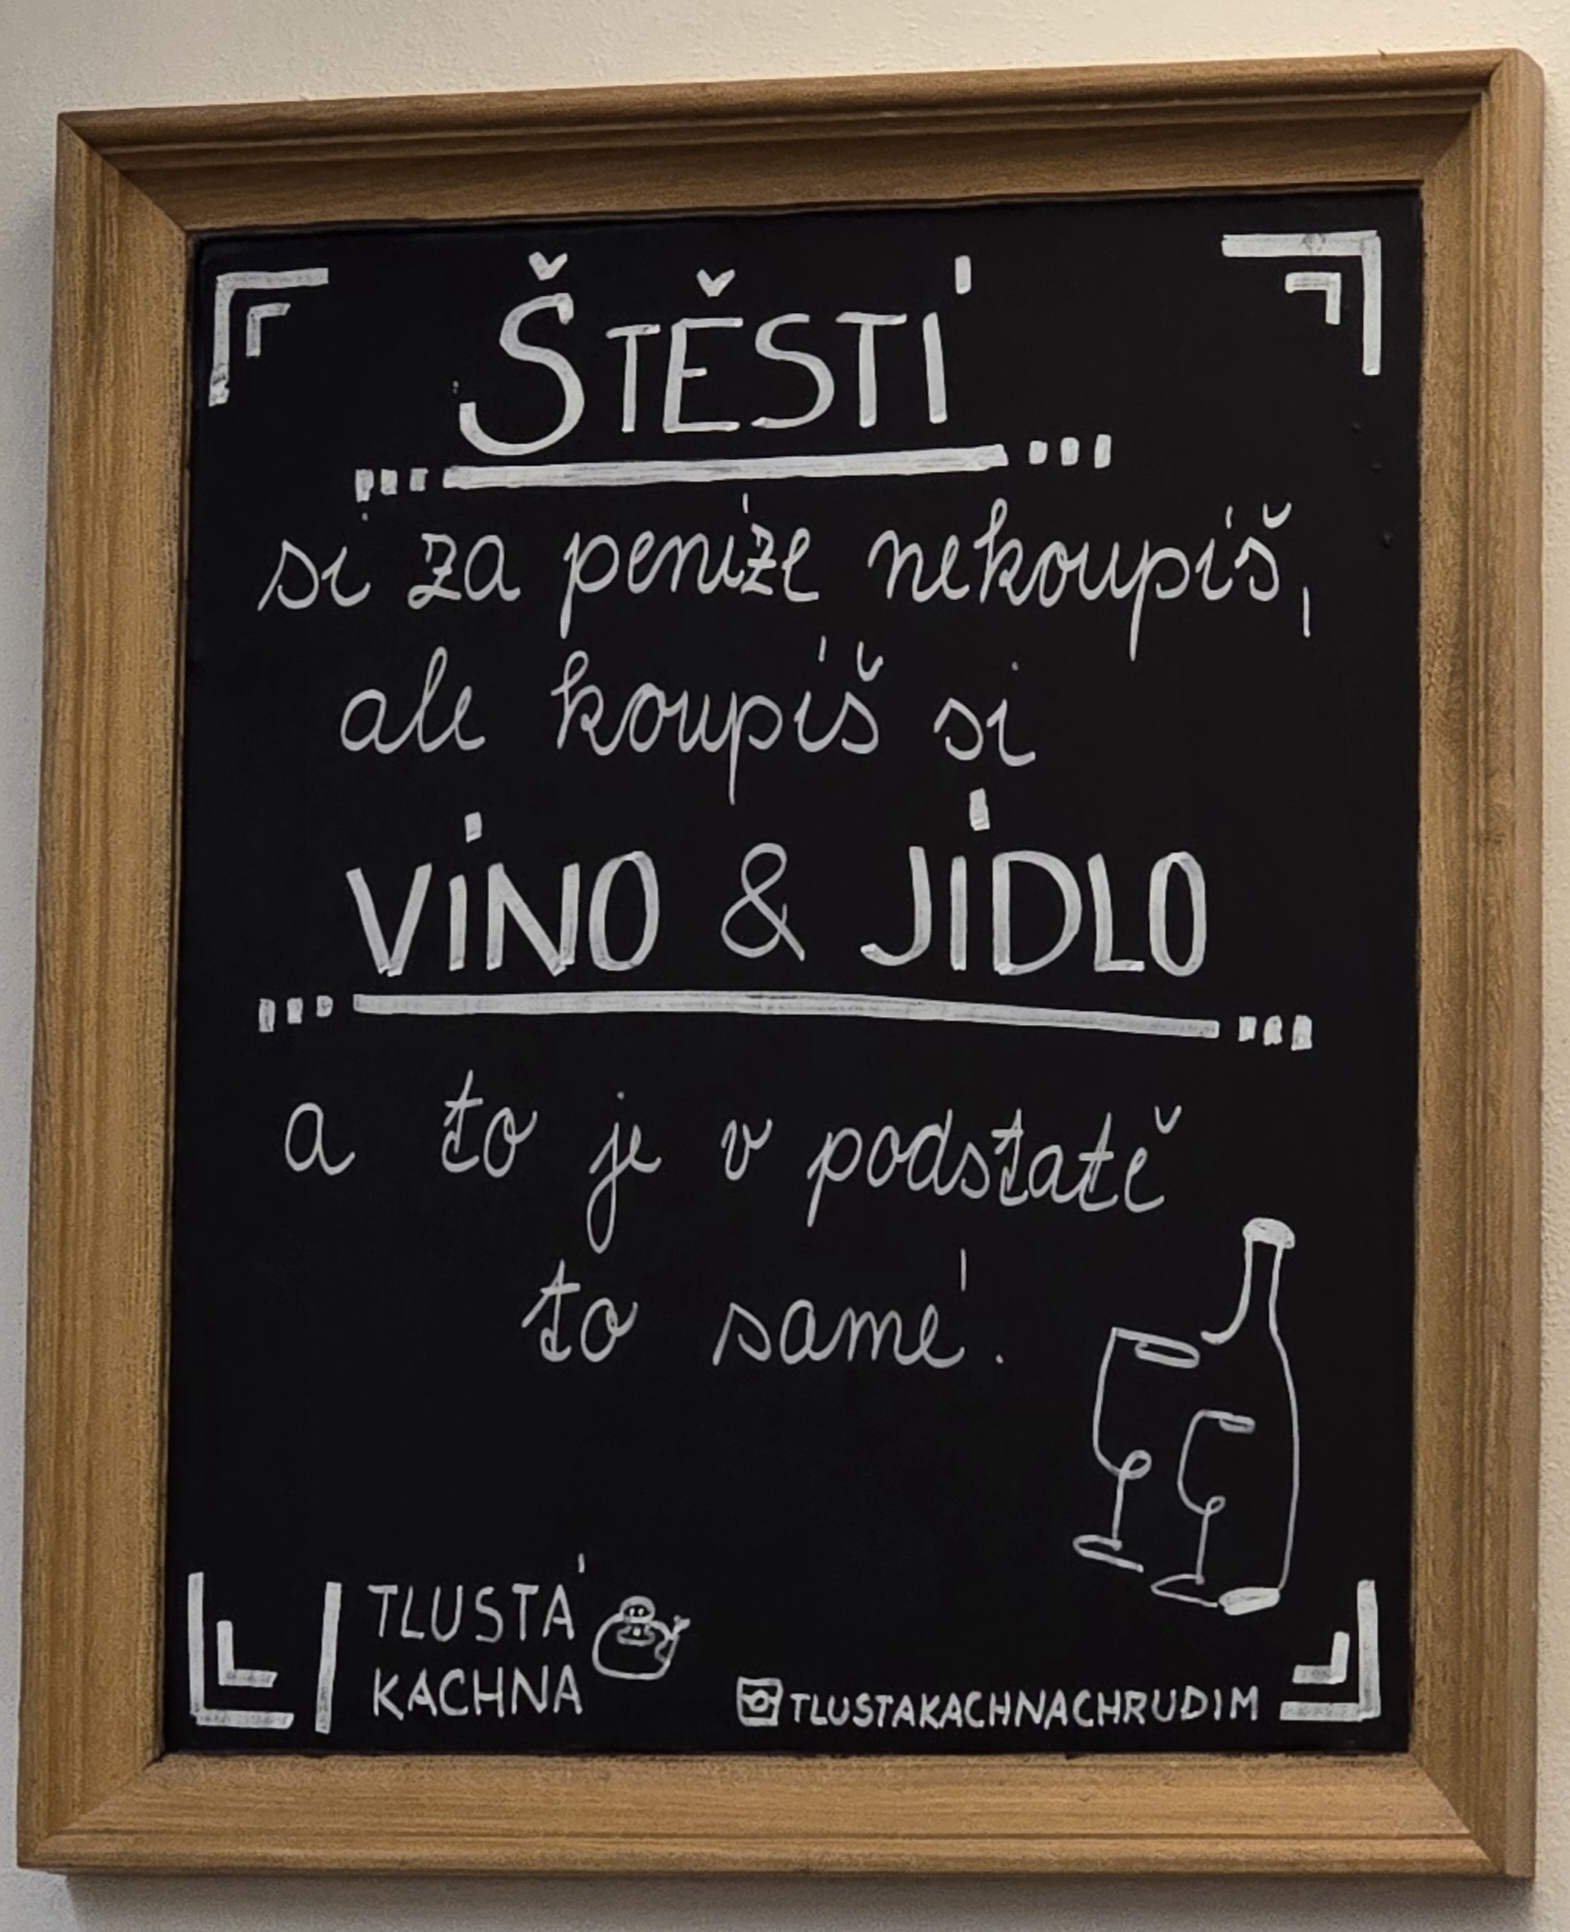 ŠTĚSTÍ
si za peníze nekoupíš,
ale koupíš si
VÍNO & JÍDLO
a to je v podstatě
to samé.
TLUSTÁ
KACHNA
TLUSTAKACHNACHRUDIM